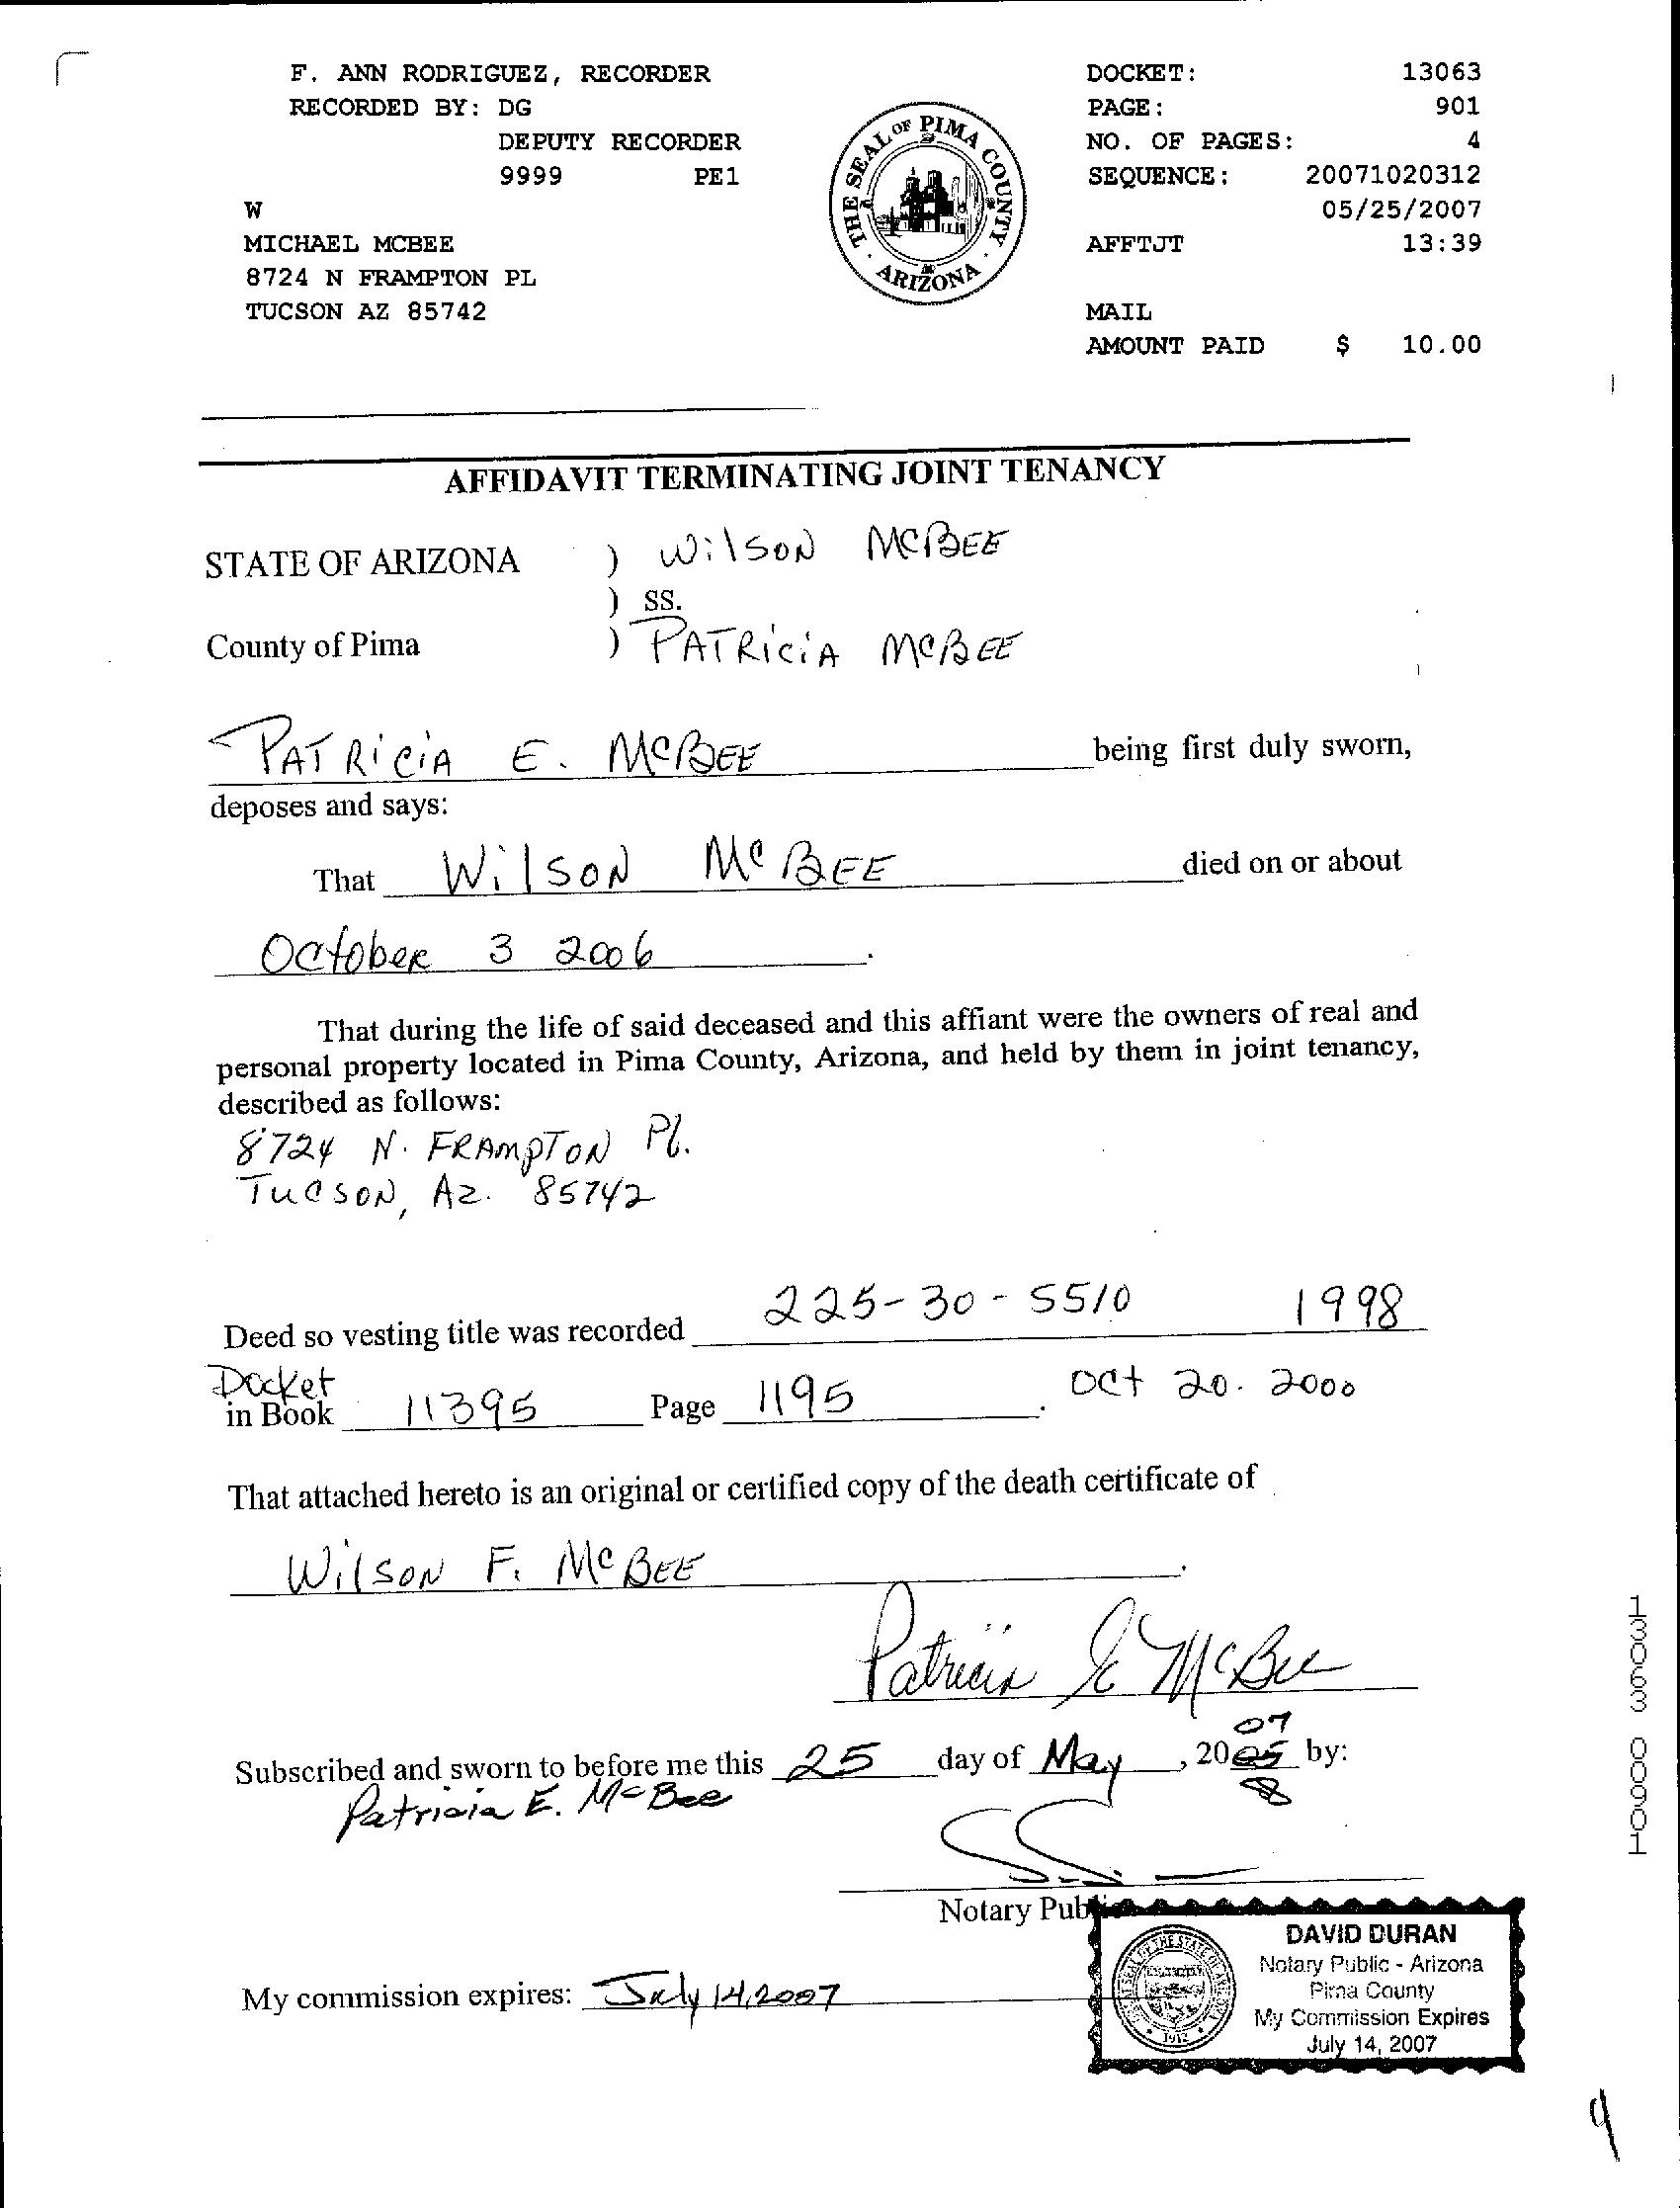 F. ANN RODRIGUEZ, RECORDER
RECORDED BY: DG
DEPUTY RECORDER
9999 PE1
W
MICHAEL MCBEE
8724 N FRAMPTON PL
TUCSON AZ 85742
THE SEAL OF PIMA COUNTY
ARIZONA
DOCKET: 13063
PAGE: 901
NO. OF PAGES: 4
SEQUENCE: 20071020312
05/25/2007
AFFTJT 13:39
MAIL
AMOUNT PAID $ 10.00
AFFIDAVIT TERMINATING JOINT TENANCY
STATE OF ARIZONA ) Wilson McBEE
) ss.
County of Pima ) PATRiCiA McBEE
PATRiCiA E. McBEE being first duly sworn,
deposes and says:
That Wilson McBEE died on or about
October 3 2006.
That during the life of said deceased and this affiant were the owners of real and
personal property located in Pima County, Arizona, and held by them in joint tenancy,
described as follows:
8724 N. FRAMPTON Pl.
Tucson, Az. 85742
Deed so vesting title was recorded 225-30-5510 1998
Docket
in Book 11395 Page 1195. Oct 20. 2000
That attached hereto is an original or certified copy of the death certificate of
Wilson F. McBEE.
Patricia E McBee
07
Subscribed and sworn to before me this 25 day of May, 2005 by:
Patricia E. McBee
Notary Public
My commission expires: July 14, 2007
DAVID DURAN
Notary Public - Arizona
Pima County
My Commission Expires
July 14, 2007
1912
13063 00901